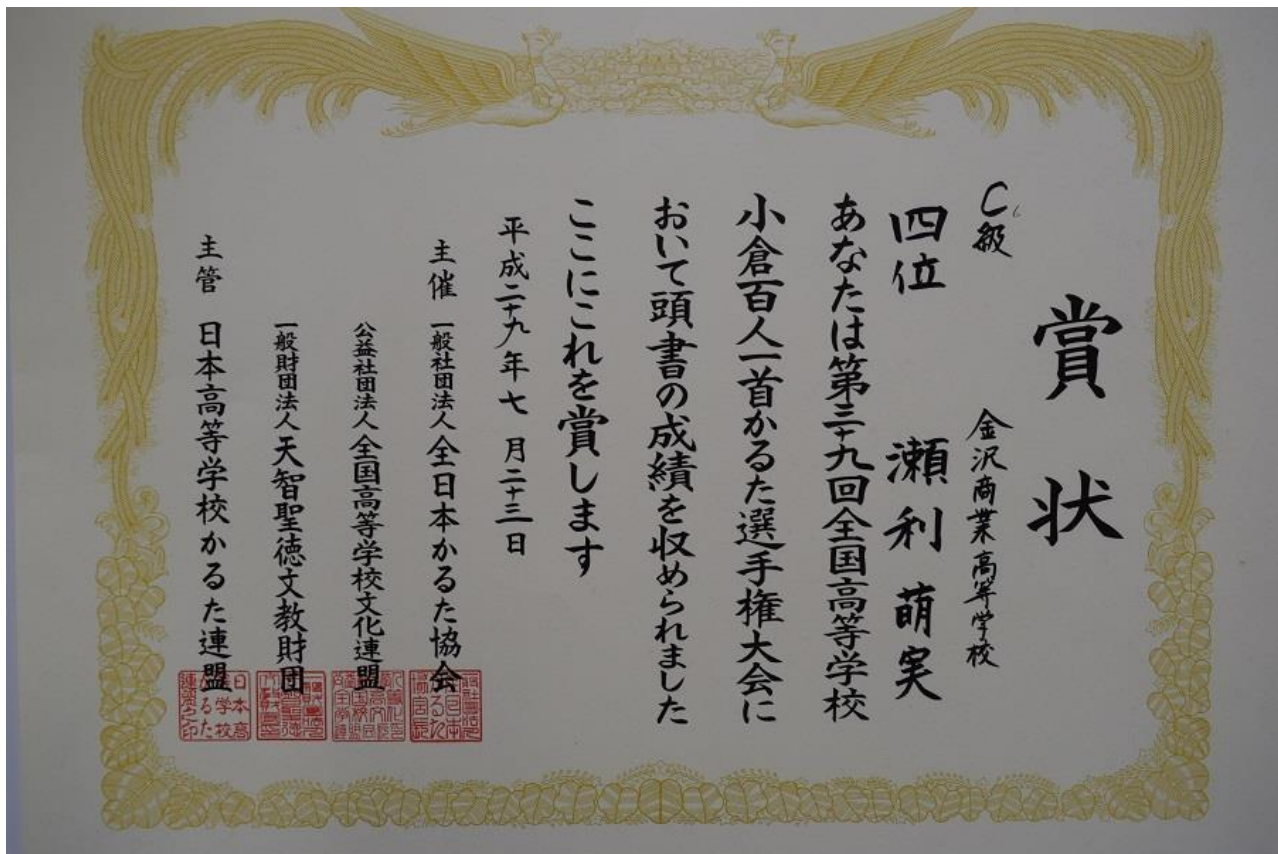 賞状
C級 金沢商業高等学校
四位 瀬利萌実
あなたは第三十九回全国高等学校
小倉百人一首かるた選手権大会に
おいて頭書の成績を収められました
ここにこれを賞します
平成二十九年七月二十三日
主催 一般社団法人全日本かるた協会
公益社団法人全国高等学校文化連盟
一般財団法人天智聖徳文教財団
主管 日本高等学校かるた連盟